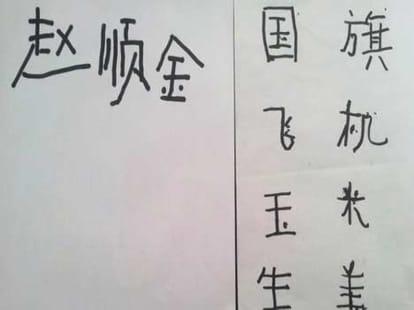 赵顺金
国旗
飞机
玉米
生姜